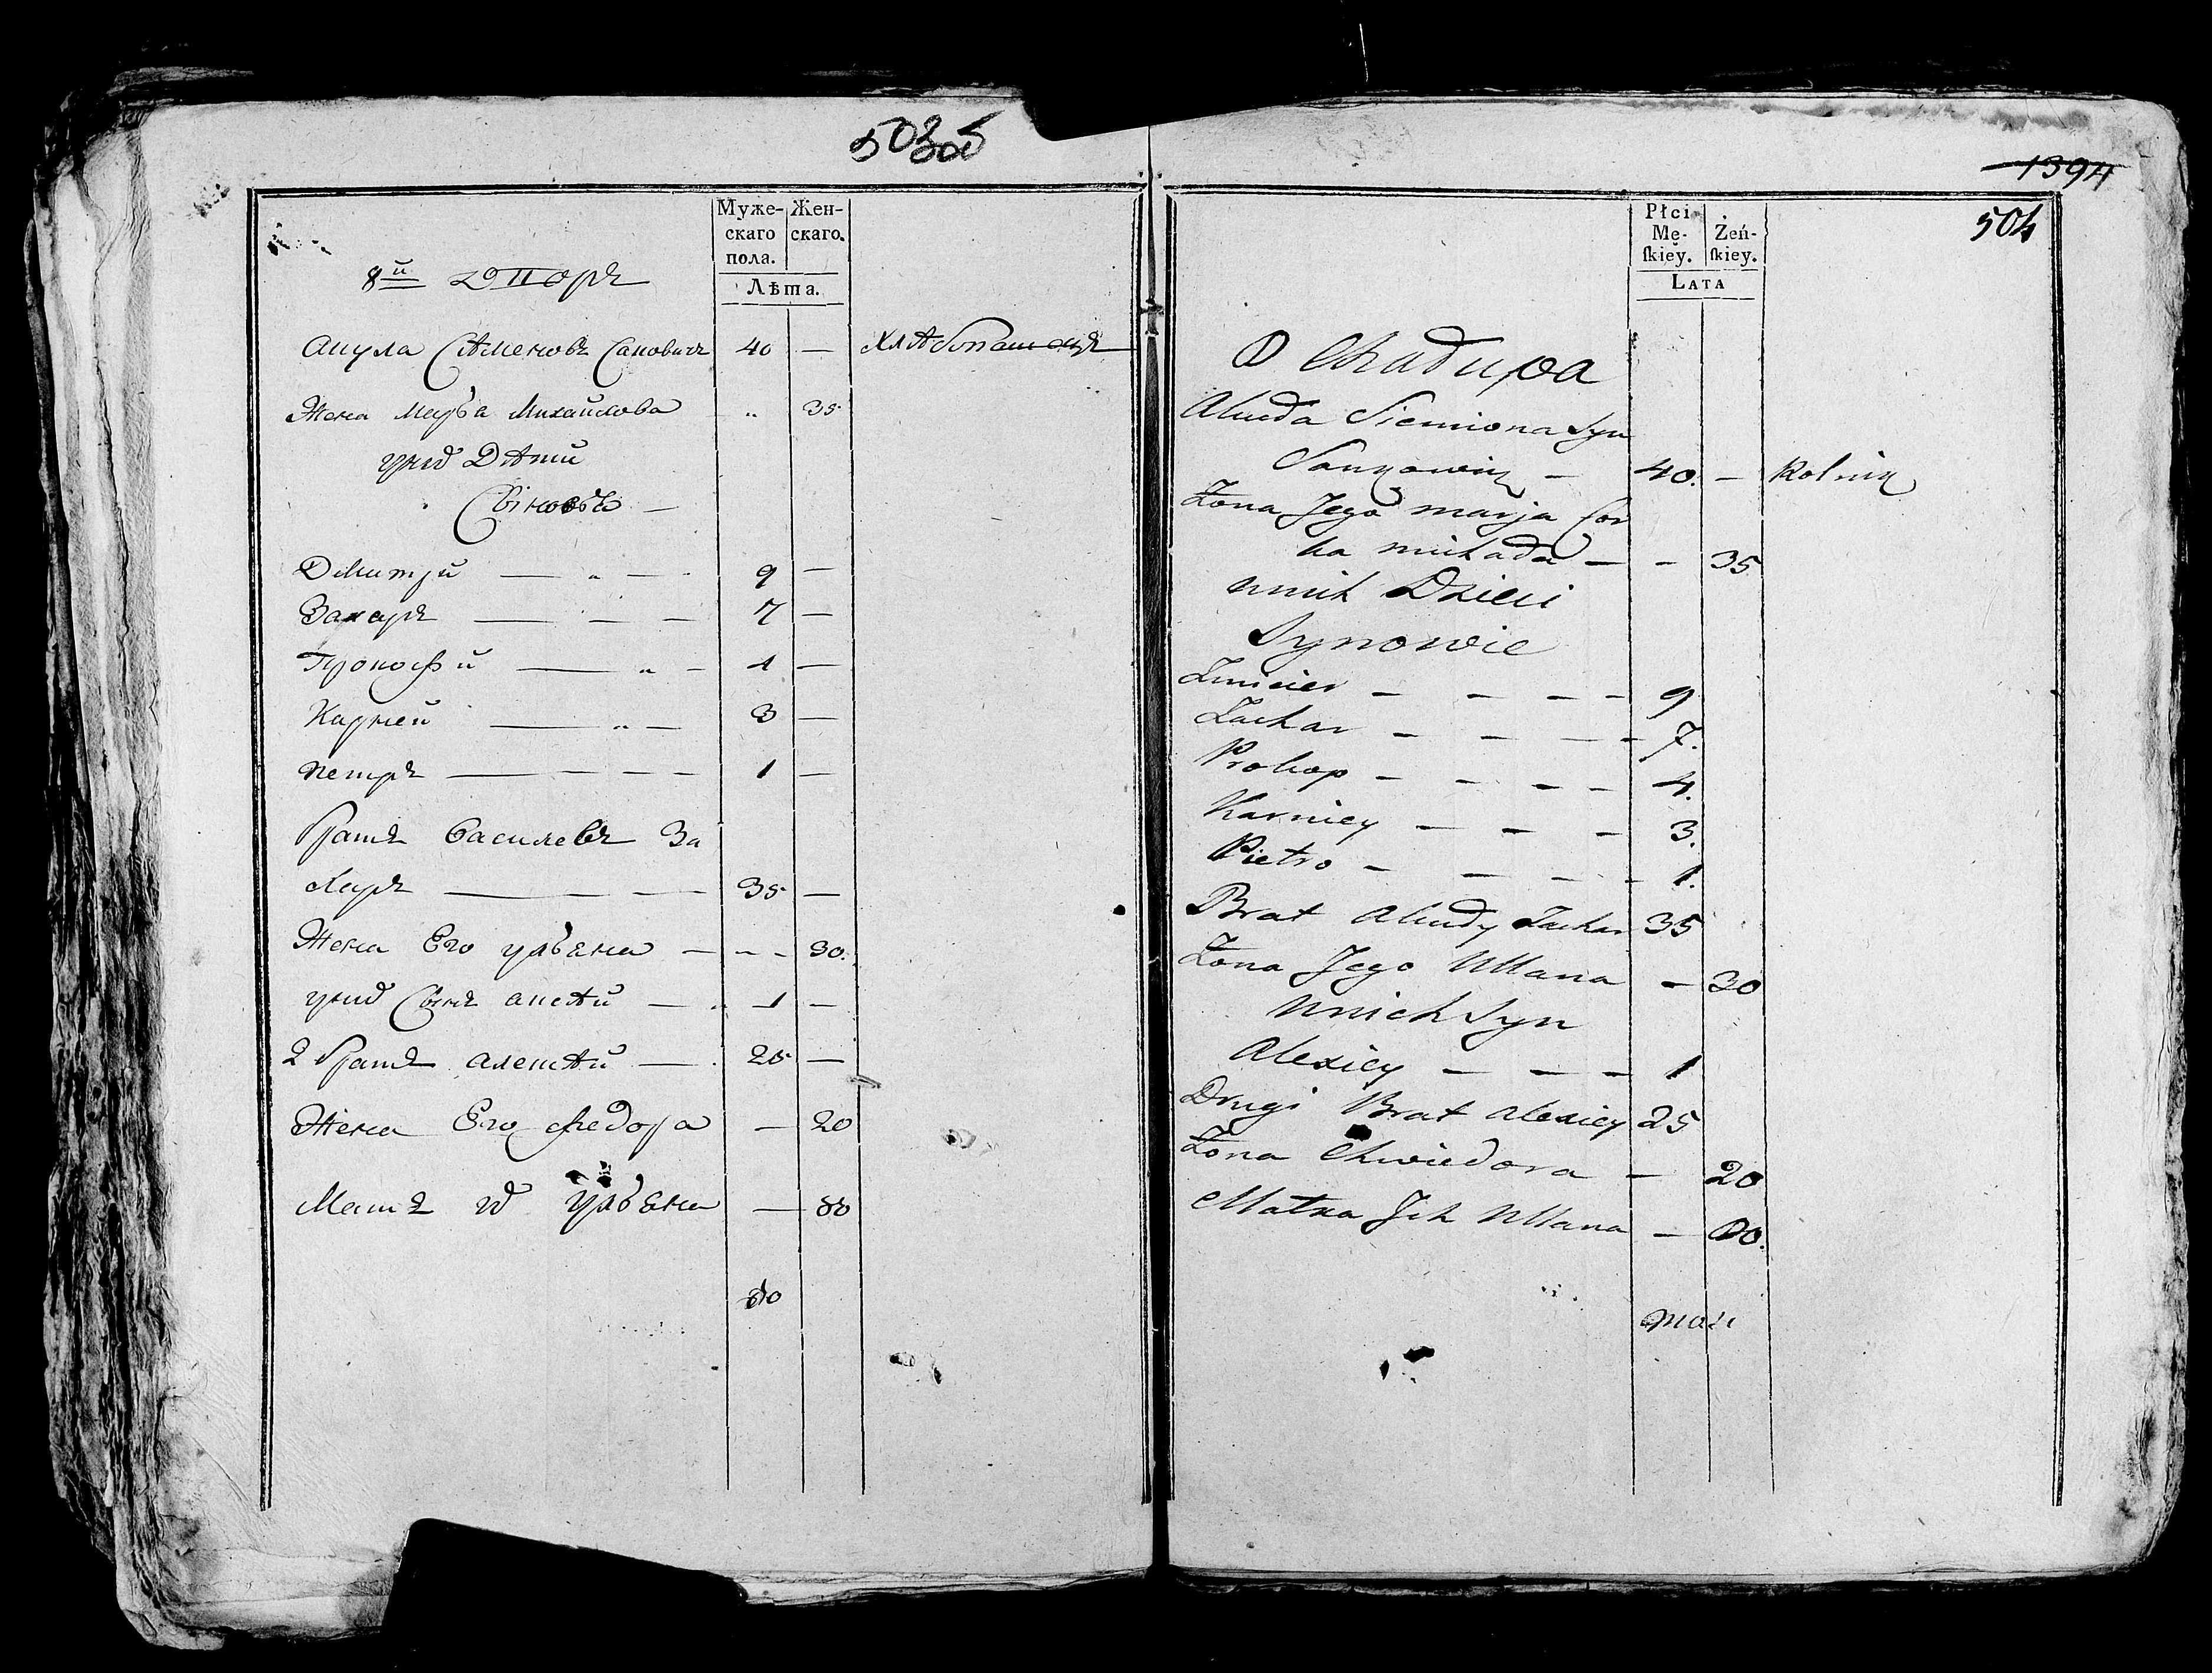 503об
Муже-
скаго
пола.
Жен-
скаго.
Лѣта.
8й Дворъ
Акула Сѣменовъ 40 — Хлѣбопашецъ
Жена Марья Михайлова „ 35
у них Дѣти
Сыновья —
Дмитрй — „ — 9 —
Захаръ — — — 7 —
Прокофй — „ — 4 —
Карней — „ — 3 —
петръ — — — — 1 —
братъ василевъ За
харъ — — — 35 —
Жена Его ульяна — — 30.
у них Сынъ алексѣй — 1 —
2 братъ алексѣй — 25 —
Жена Его федора — 20
Мать их Ульяна —
1394
504
Płci
Mę-
skiey.
Żeń-
skiey.
LATA
8 Chałupa
Siemiona Syn
40. — Rolnik
Żona Jego marja Cor
ka michała — — 35
unich Dzieci
Synowie
Zmicier — — — — 9
Zachar — — — — 7.
Prokop — — — — 4.
Karniey — — — 3.
Pietro — — — — 1.
Brat Zachar 35
Żona Jego Ullana — 30
Unich Syn
Alexiey — — — 1
Drugi Brat alexiey 25
Żona Chwiedora — 20
Matka Jch Ullana — 80.